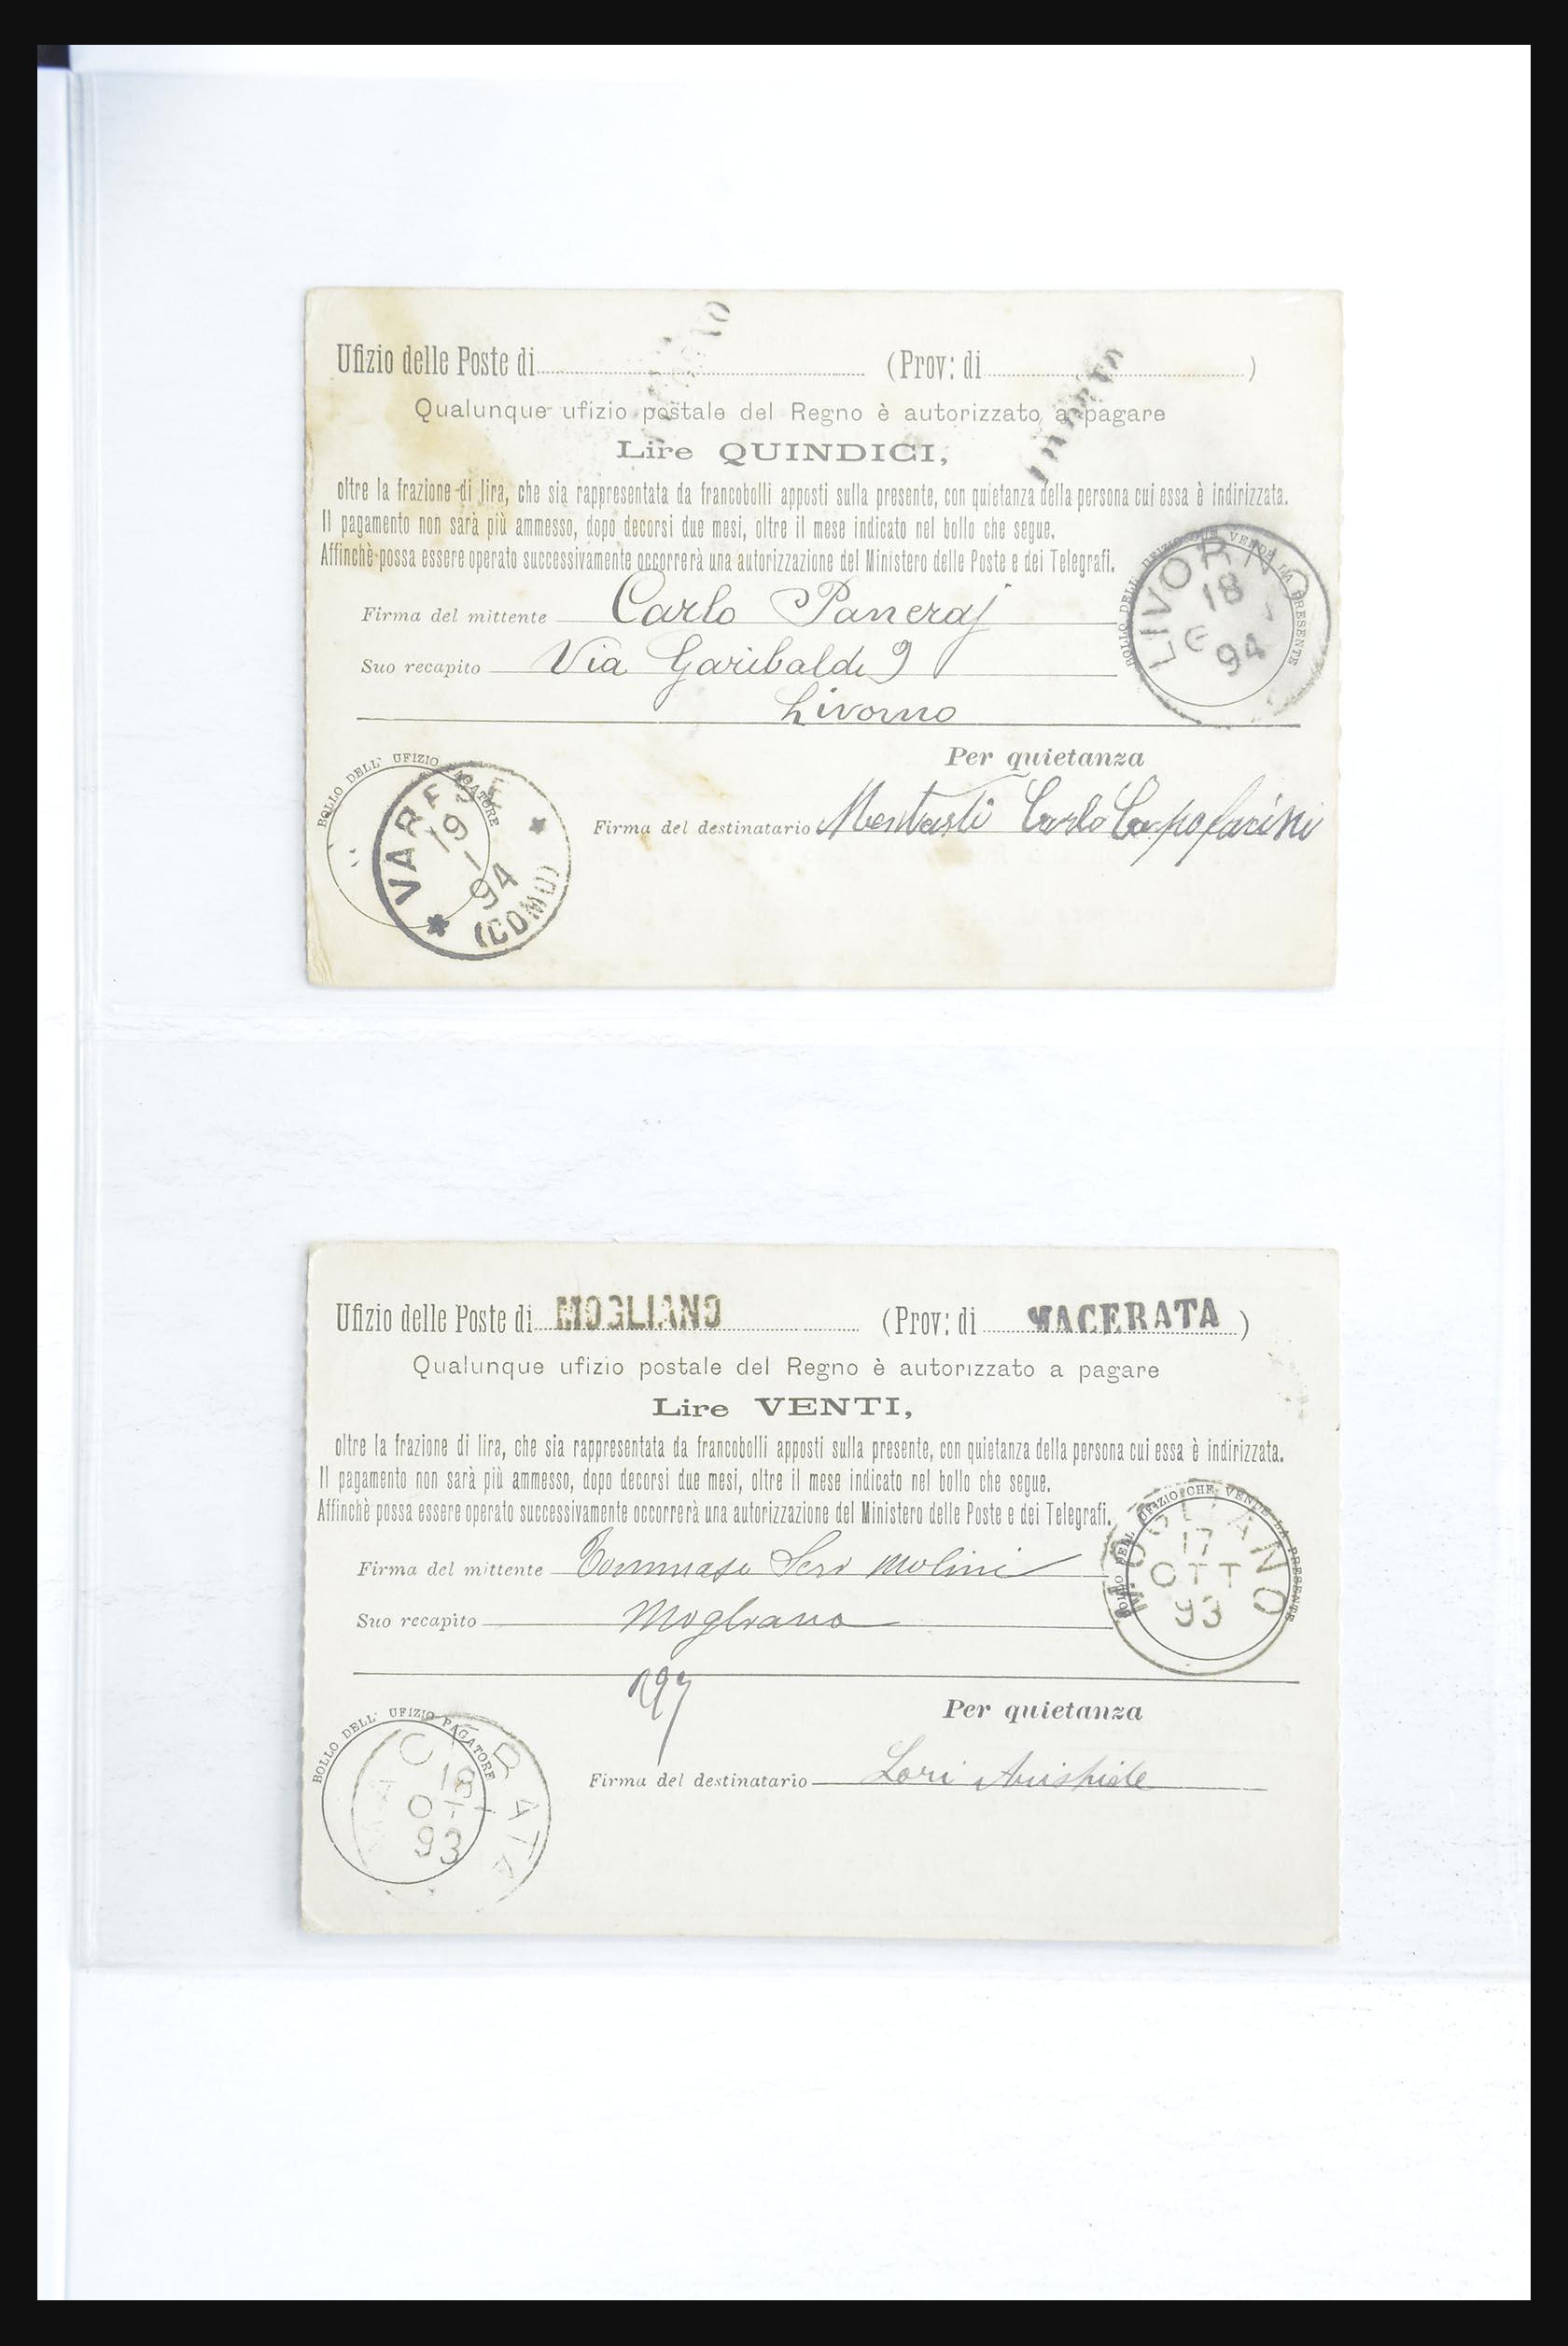 Ufizio delle Poste di (Prov: di )
Qualunque ufizio postale del Regno è autorizzato a pagare
Lire QUINDICI,
oltre la frazione di lira, che sia rappresentata da francobolli apposti sulla presente, con quietanza della persona cui essa è indirizzata.
Il pagamento non sarà più ammesso, dopo decorsi due mesi, oltre il mese indicato nel bollo che segue.
Affinchè possa essere operato successivamente occorrerà una autorizzazione del Ministero delle Poste e dei Telegrafi.
BOLLO DELL' UFIZIO CHE VENDE LA PRESENTE
LIVORNO
18
94
Firma del mittente Carlo Paneraj
Suo recapito Via Garibaldi 9
Livorno
Per quietanza
BOLLO DELL' UFIZIO PAGATORE
VARESE
19
1
94
(COMO)
Firma del destinatario Carlo
Ufizio delle Poste di MOGLIANO (Prov: di MACERATA)
Qualunque ufizio postale del Regno è autorizzato a pagare
Lire VENTI,
oltre la frazione di lira, che sia rappresentata da francobolli apposti sulla presente, con quietanza della persona cui essa è indirizzata.
Il pagamento non sarà più ammesso, dopo decorsi due mesi, oltre il mese indicato nel bollo che segue.
Affinchè possa essere operato successivamente occorrerà una autorizzazione del Ministero delle Poste e dei Telegrafi.
BOLLO DELL' UFIZIO CHE VENDE LA PRESENTE
MOGLIANO
17
OTT
93
Firma del mittente Tommaso Seri Molini
Suo recapito Mogliano
Per quietanza
BOLLO DELL' UFIZIO PAGATORE
MACERATA
18
93
Firma del destinatario Lori Aristide